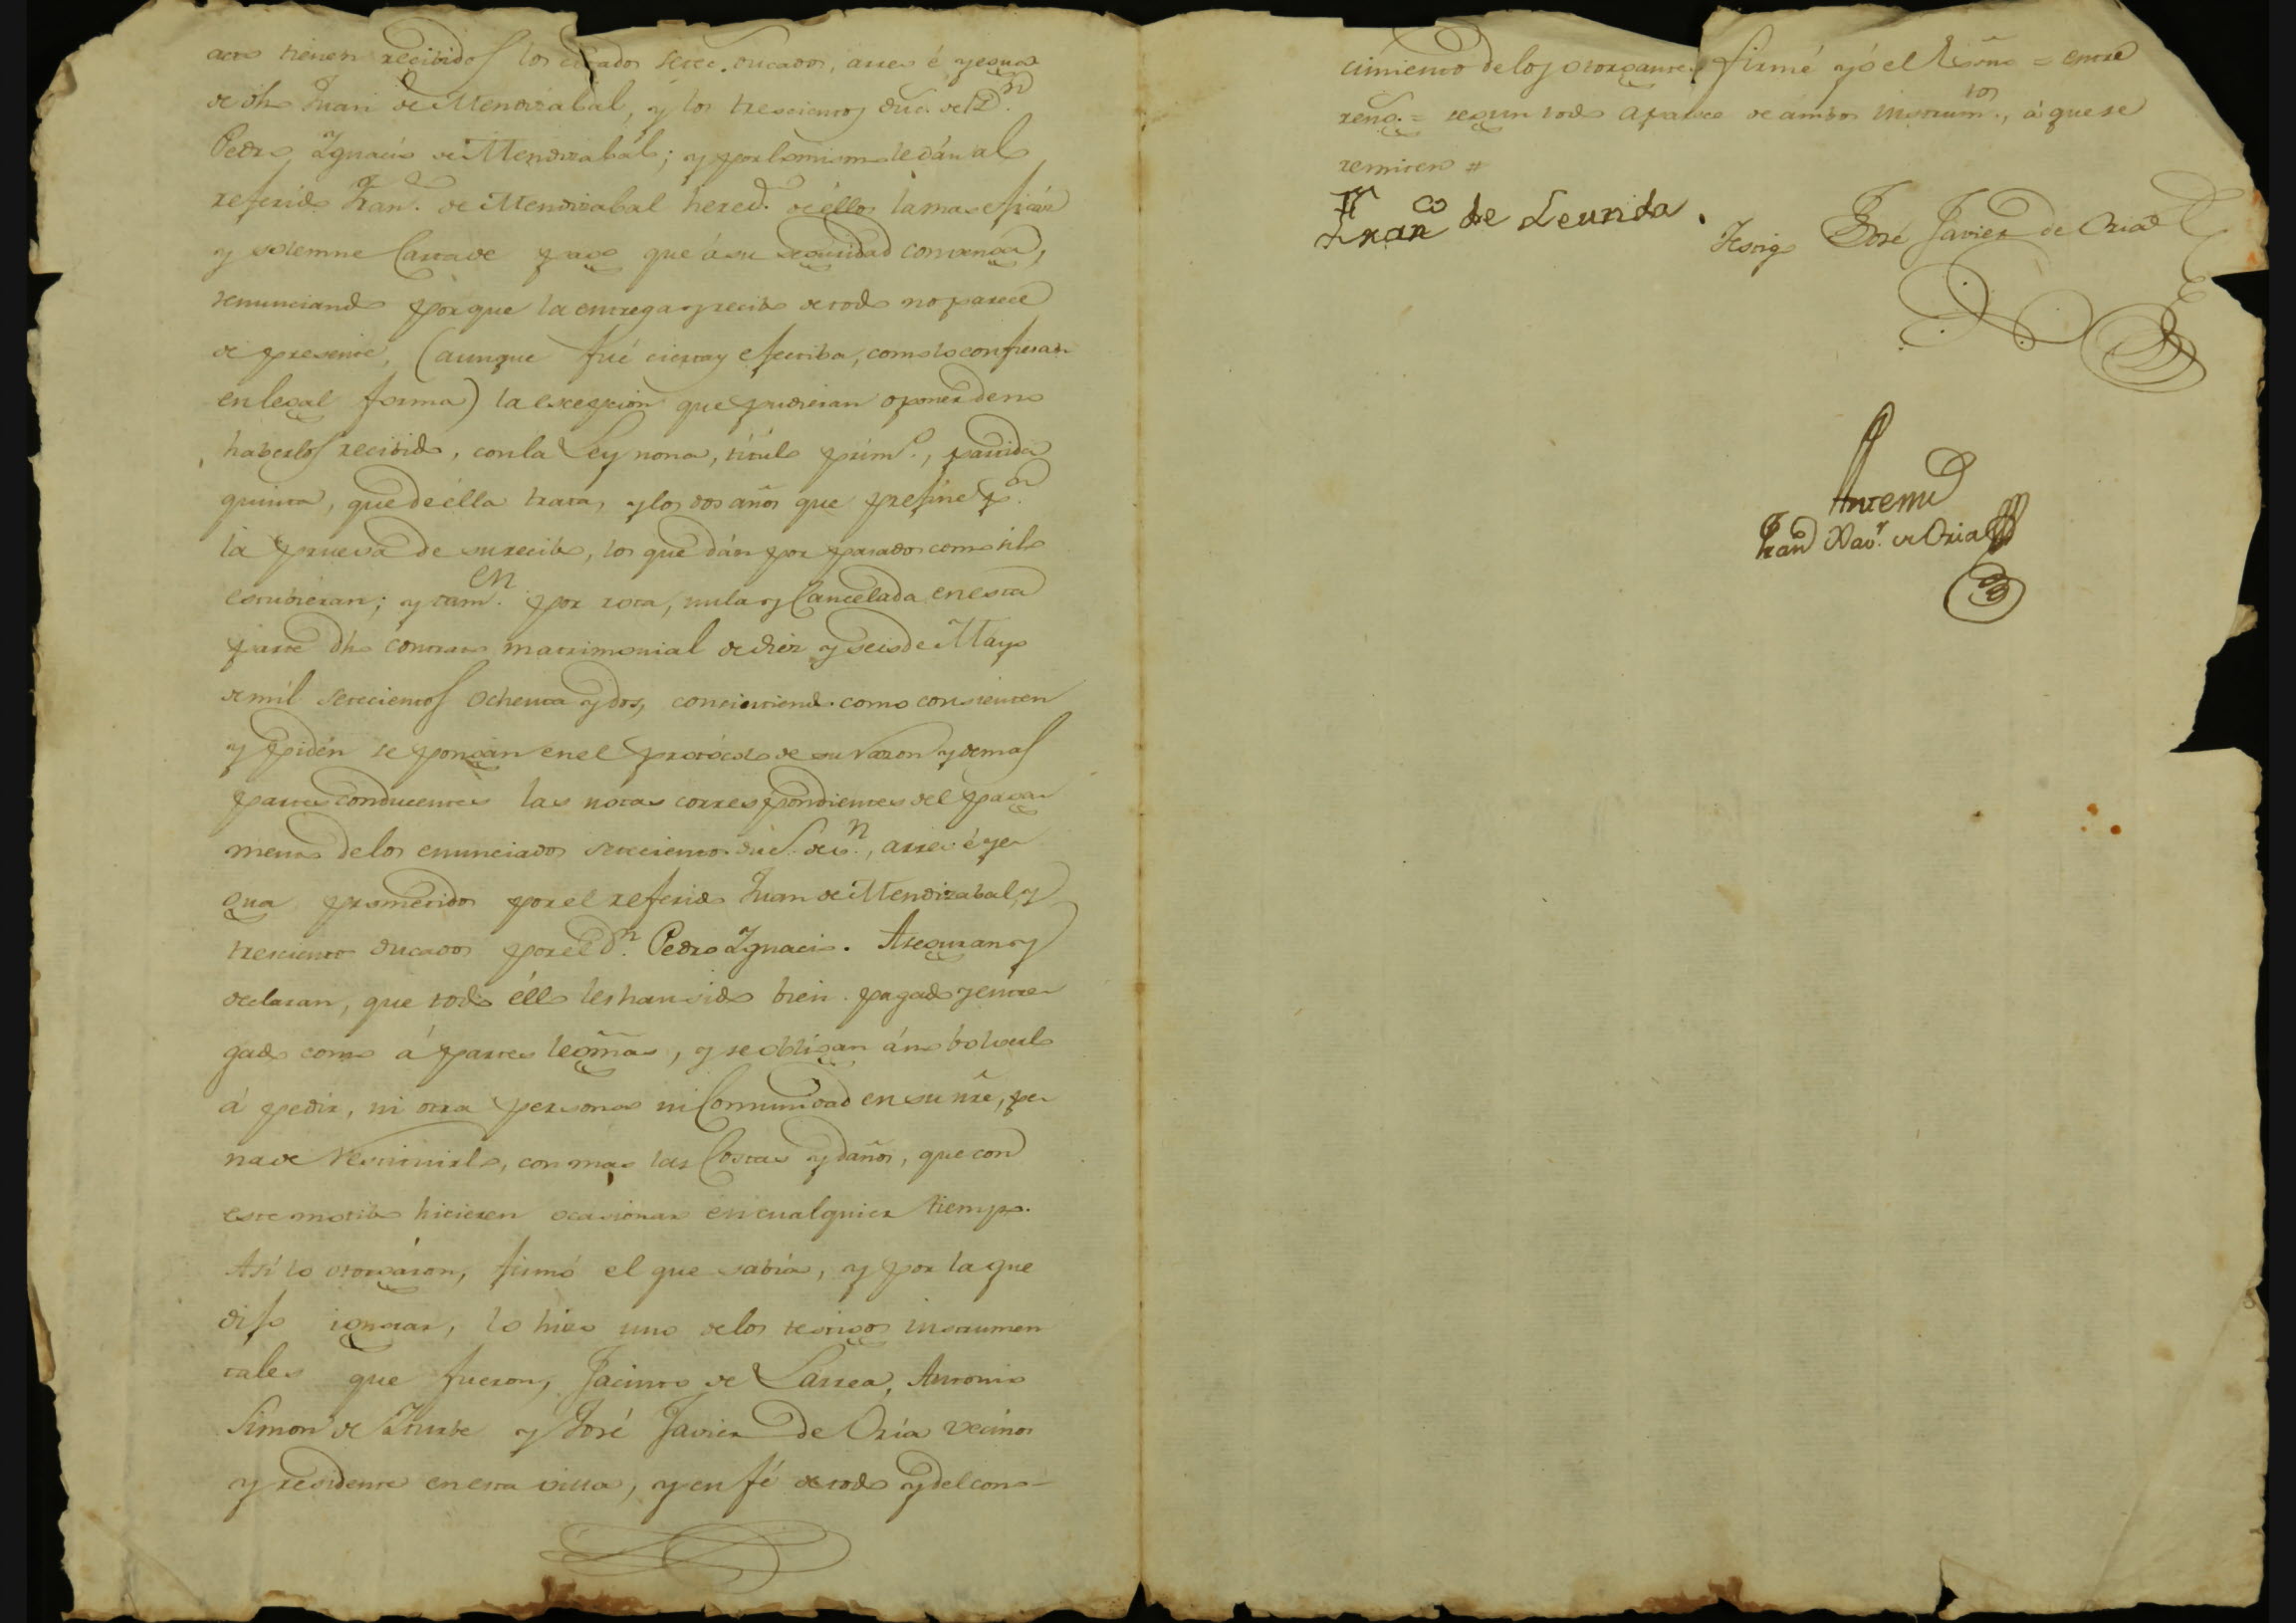 acto tienen recibidos los citados setec. ducados, arreo é yegua
de dho Juan de Mendizabal, y los trescientos duc. del D.n
Pedro Ygnacio de Mendizabal; y por lo mismo le dán al
referido Fran.co de Mendizabal hered.o de éllos la mas eficáz
y solemne Carta de pago que á su seguridad convenga,
renunciando por que la entrega y recibo de todo no parece
de presente, (aunque fué cierta y efectiba, como lo confiesan
en legal forma) la excepcion que pudieran oponer de no
haberlos recibido, con la Ley nona, título prim.o, partida
quinta, que de élla trata, y los dos años que prefine p.a
la prueva de su recibo, los que dán por pasados como si lo
estubieran; y tam.en por rota, nula y Cancelada en esta
parte dho contrato matrimonial de diez y seis de Mayo
de mil setecientos ochenta y dos, consintiendo como consienten
y pidén se pongan en el protócolo de su razon y demas
partes conducentes las notas correspondientes del paga
mento de los enunciados setecientos duc.s de v.n, arreo é ye
gua prometidos por el referido Juan de Mendizabal, y
trescientos ducados por el D.n Pedro Ygnacio. Aseguran y
declaran, que todo éllo les han sido bien pagado y entre
gado como á partes legmas, y se obligan á no bolverlo
á pedir, ni otra persona ni Comunidad en su nre, pe
na de restituirlo, con mas las Costas y daños, que con
este motibo hicieren ocasionar en cualquier tiempo.
Así lo otorgáron, firmó el que sabía, y por la que
dijo ignorar, lo hizo uno de los testigos instrumen
tales que fueron, Jacinto de Larrea, Antonio
Simon de Yturbe y José Javier de Oria vecinos
y residente en esta villa, y en fé de todo y del cono-
cimiento de los otorgantes firmé yó el Essno = entre
reng.s = segun todo aparece de ambos instrum.tos, á que se
remiten #
Fran.co de Leunda.
Testigo José Javier de Oria
Ante mi
Fran.co Xav.r de Oria